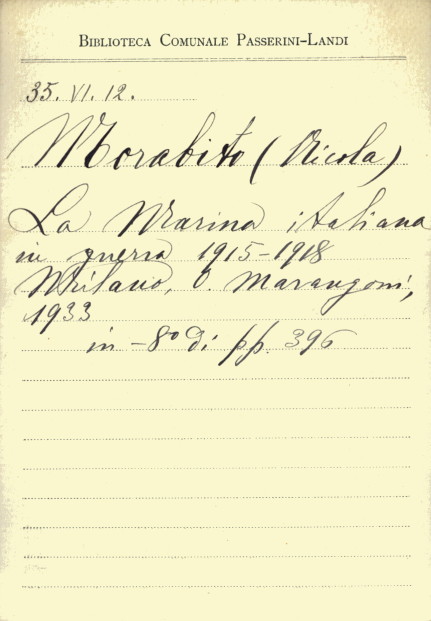 BIBLIOTECA COMUNALE PASSERINI-LANDI
35. VI. 12.
Morabito (Nicola)
La Marina italiana
in guerra 1915-1918
Milano, O. Marangoni,
1933
in - 8° di pp. 396